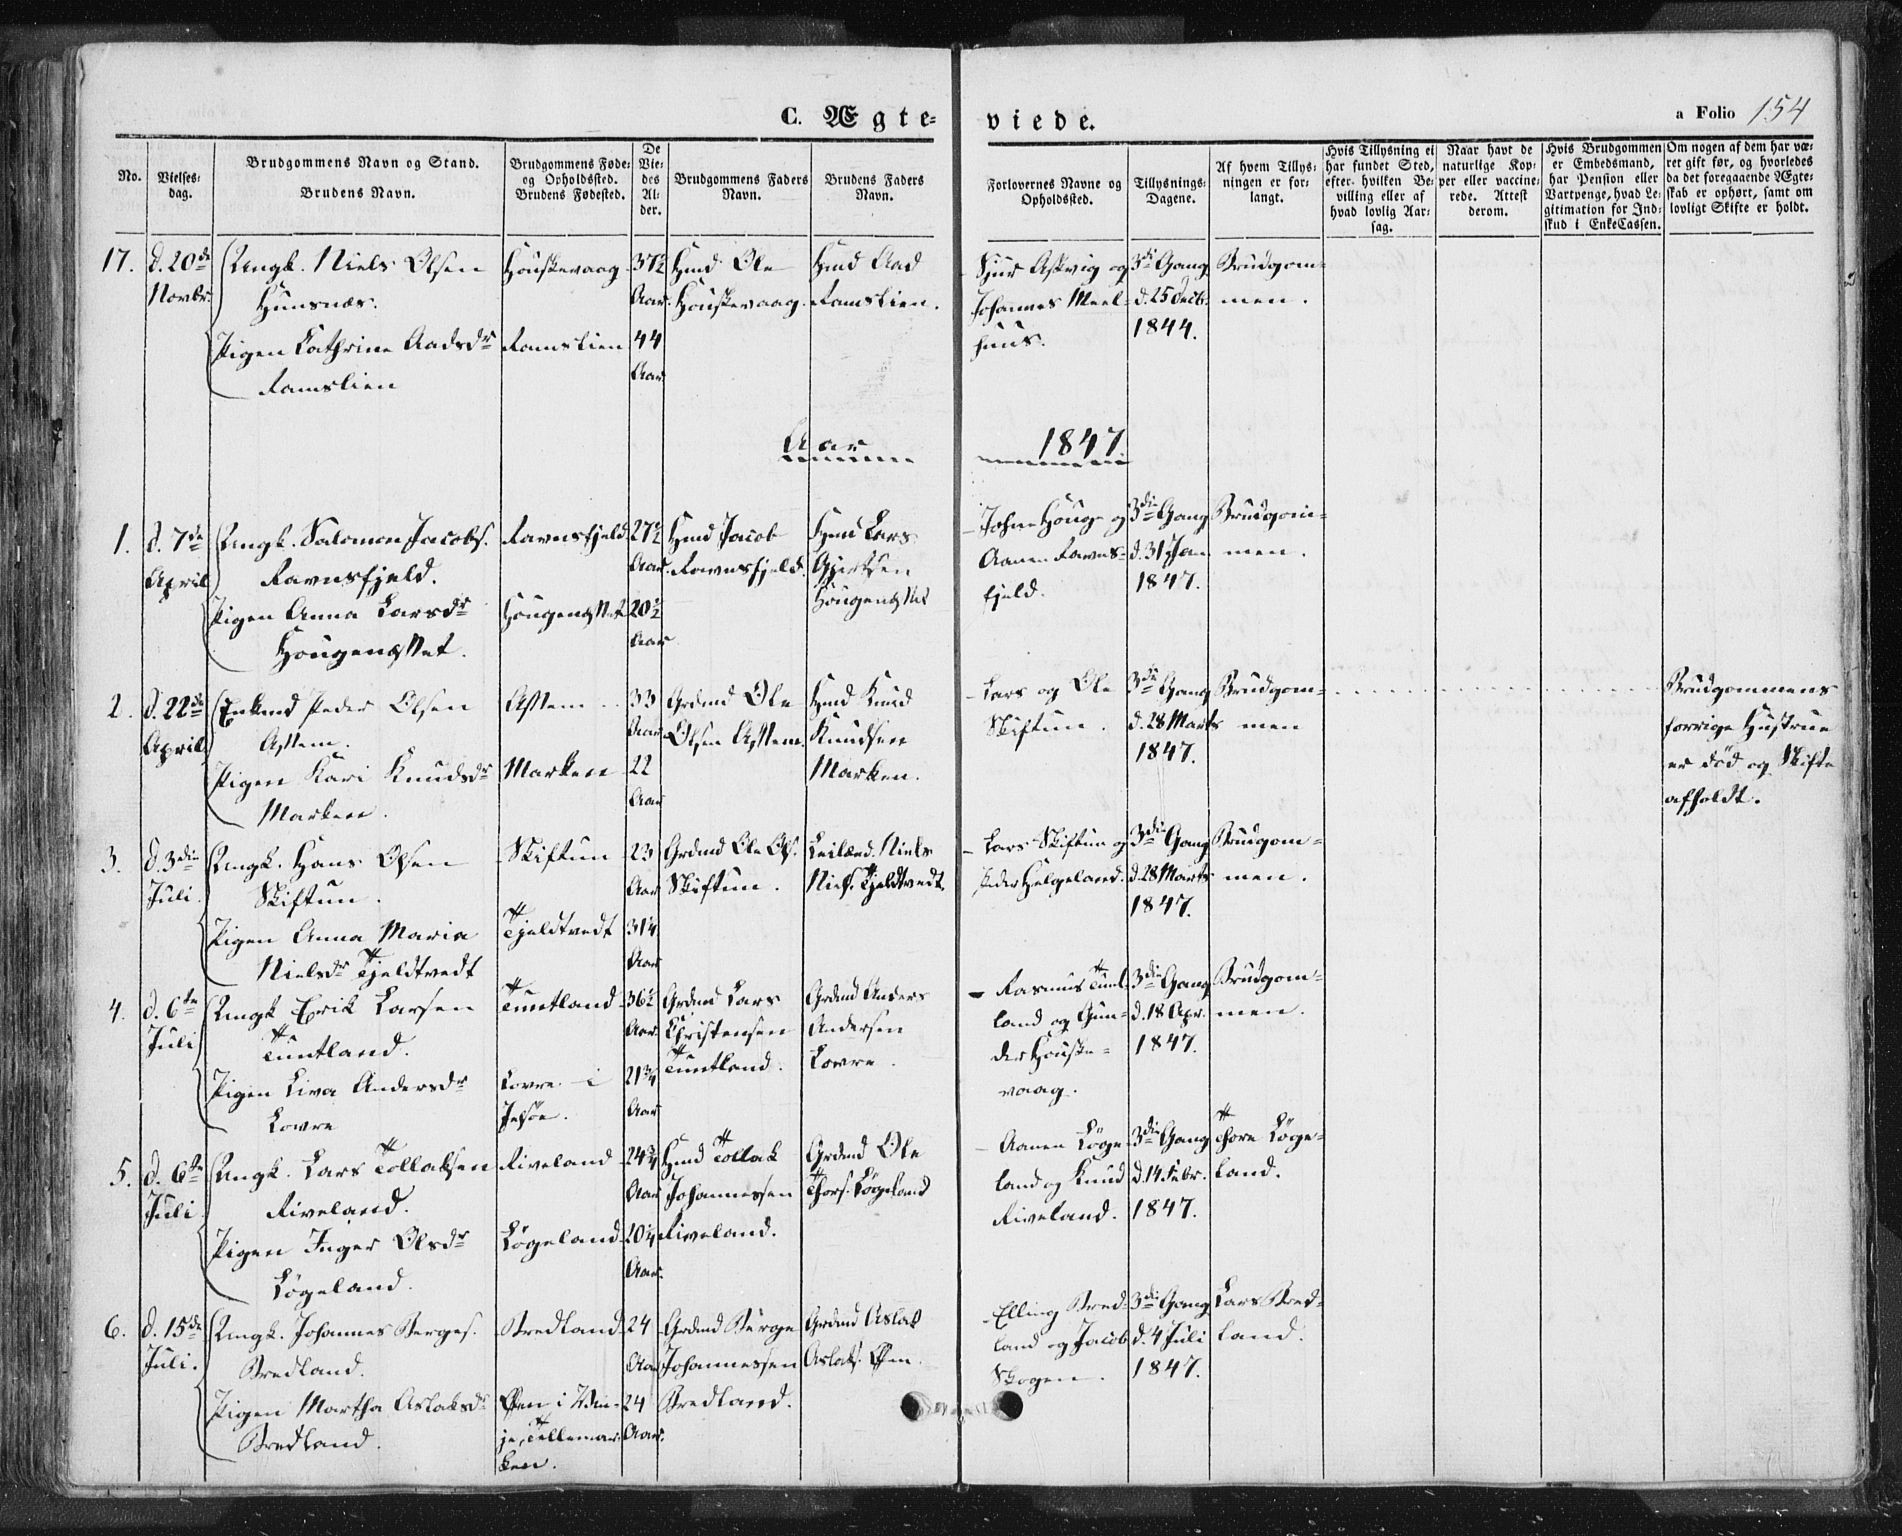 C. Ægte-
viede.
a Folio 154
No.
Vielses-
dag.
Brudgommens Navn og Stand.
Brudens Navn.
Brudgommens Føde-
og Opholdssted.
Brudens Fødested.
De
Vie-
des
Al-
der.
Brudgommens Faders
Navn.
Brudens Faders
Navn.
Forlovernes Navne og
Opholdssted.
Tillysnings-
Dagene.
Af hvem Tillys-
ningen er for-
langt.
Hvis Tillysning ei
har fundet Sted,
efter hvilken Be-
villing eller af
hvad lovlig Aar-
sag.
Naar havt de
naturlige Kop-
per eller vaccine-
rede. Attest
derom.
Hvis Brudgommen
er Embedsmand,
har Pension eller
Vartpenge, hvad Le-
gitimation for Ind-
skud i EnkeCassen.
Om nogen af dem har væ-
ret gift før, og hvorledes
da det foregaaende Ægte-
skab er ophørt, samt om
lovligt Skifte er holdt.
17.
d. 20de
Novbr.
Ungk. Niels Olsen
Hunsnæs.
Pigen Cathrine Aadsdr
Ramslien
Houskevaag
Ramslien
37½
Aar.
44
Aar
Hmd Ole
Houskevaag.
Hmd Aad
Ramslien.
Sjur Askvig og
Johannes Meel-
huus.
3die Gang
d. 25 Decb.
1844.
Brudgom-
men.
Aar
1847
1.
d. 7de
April
Ungk. Salomon Jacobs.
Ravnsfjeld.
Pigen Anna Larsdr
Hougen
Ravnsfjeld
27½
Aar.
20½
Aar
Hmd Jacob
Ravnsfjeld.
Hmd Lars
Gjertsen
John Houge og
Aanen Ravns-
fjeld.
3die Gang
d. 31 Jan
1847.
Brudgom-
men.
2.
d. 22de
April
Enkemd Peder Olsen
Pigen Kari Knudsdr
Marken.
Marken
33
Aar
22
Aar
Grdmd Ole
Olsen
Hmd Knud
Knudsen
Marken.
Lars og Ole
Skiftun.
3die Gang
d. 28 Marts
1847.
Brudgom-
men
Brudgommens
forrige Hustrue
er død og Skifte
afholdt.
3.
d. 3die
Juli.
Ungk. Hans Olsen
Skiftun.
Pigen Anna Maria
Nielsdr Tjeldtvedt
Skiftun
Tjeldtvedt
23
Aar
31¼
Aar
Grdmd Ole Ols.
Skiftun.
Leilænd. Niels
Niels. Tjeldtvedt.
Lars Skiftun og
Peder Helgeland.
3die Gang
d. 28 Marts
1847.
Brudgom-
men.
4.
d. 6te
Juli
Ungk Erik Larsen
Tuntland.
Pigen Liva Andersdr
Lovre
Tuntland
Lovre i
Jelsøe.
36½
Aar.
21¾
Aar
Grdmd Lars
Christensen
Tuntland.
Grdmd Anders
Andersen
Lovre.
Rasmus Tunt-
land og Gun-
der Houske-
vaag.
3die Gang
d. 18 Apr.
1847.
Brudgom-
men.
5.
d. 6te
Juli.
Ungk. Lars Tollaksen
Riveland.
Pigen Inger Olsdr
Løgeland.
Riveland
Løgeland
24¾
Aar
20¼
Aar.
Hmd Tollak
Johannessen
Riveland.
Grdmd Ole
Thors. Løgeland
Aanen Løge-
land og Knud
Riveland.
3die Gang
d. 14 Febr.
1847.
Thore Løge-
land.
6.
d. 15de
Juli.
Ungk. Johannes Berges.
Bredland.
Pigen Martha Aslaksdr
Bredland.
Bredland
i Vin-
je, Tellemar-
ken.
24
Aar
24
Aar.
Grdmd Berge
Johannessen
Bredland.
Grdmd Aslak
Aslaks.
Elling Bred-
land og Jacob
Skogen.
3die Gang
d. 4 Juli
1847.
Lars Bred-
land.